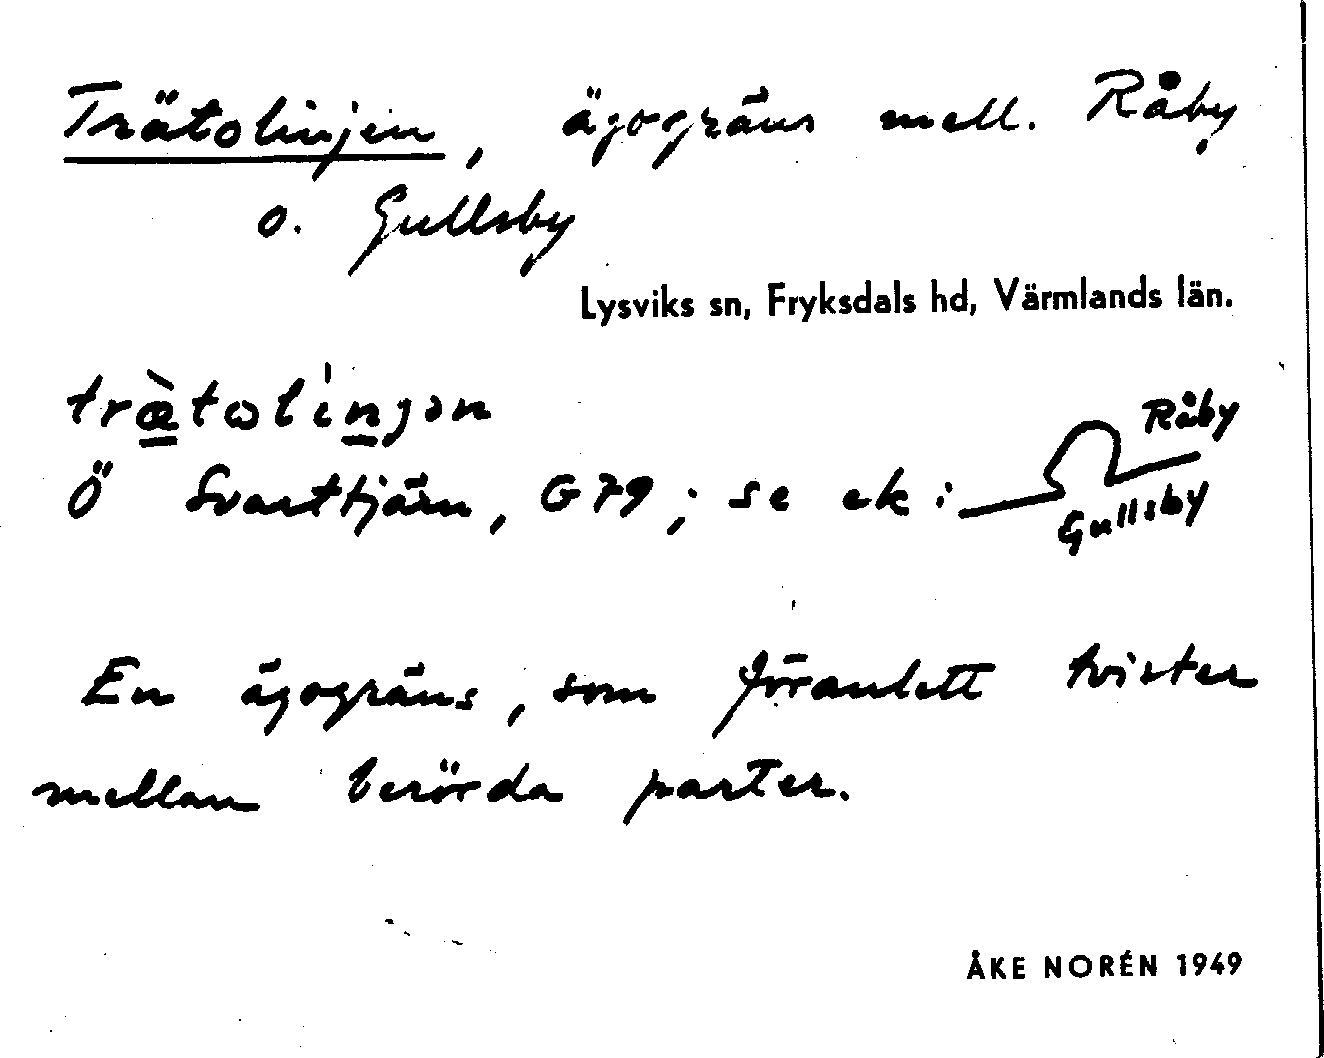 Trätolinjen, ägogräns mell. Råby
o. Gullsby
Lysviks sn, Fryksdals hd, Värmlands län.
træ̀tωlínjən
Ö Svarttjärn, G79; se ek:
Råby
Gullsby
En ägogräns, som föranlett tvister
mellan berörda parter.
ÅKE NORÉN 1949